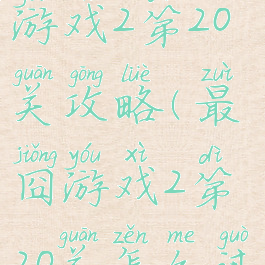 游戏2第20
guān gōng lüè zuì
关攻略(最
jiǒng yóu xì dì
囧游戏2第
guān zěn me guò
20关怎么过